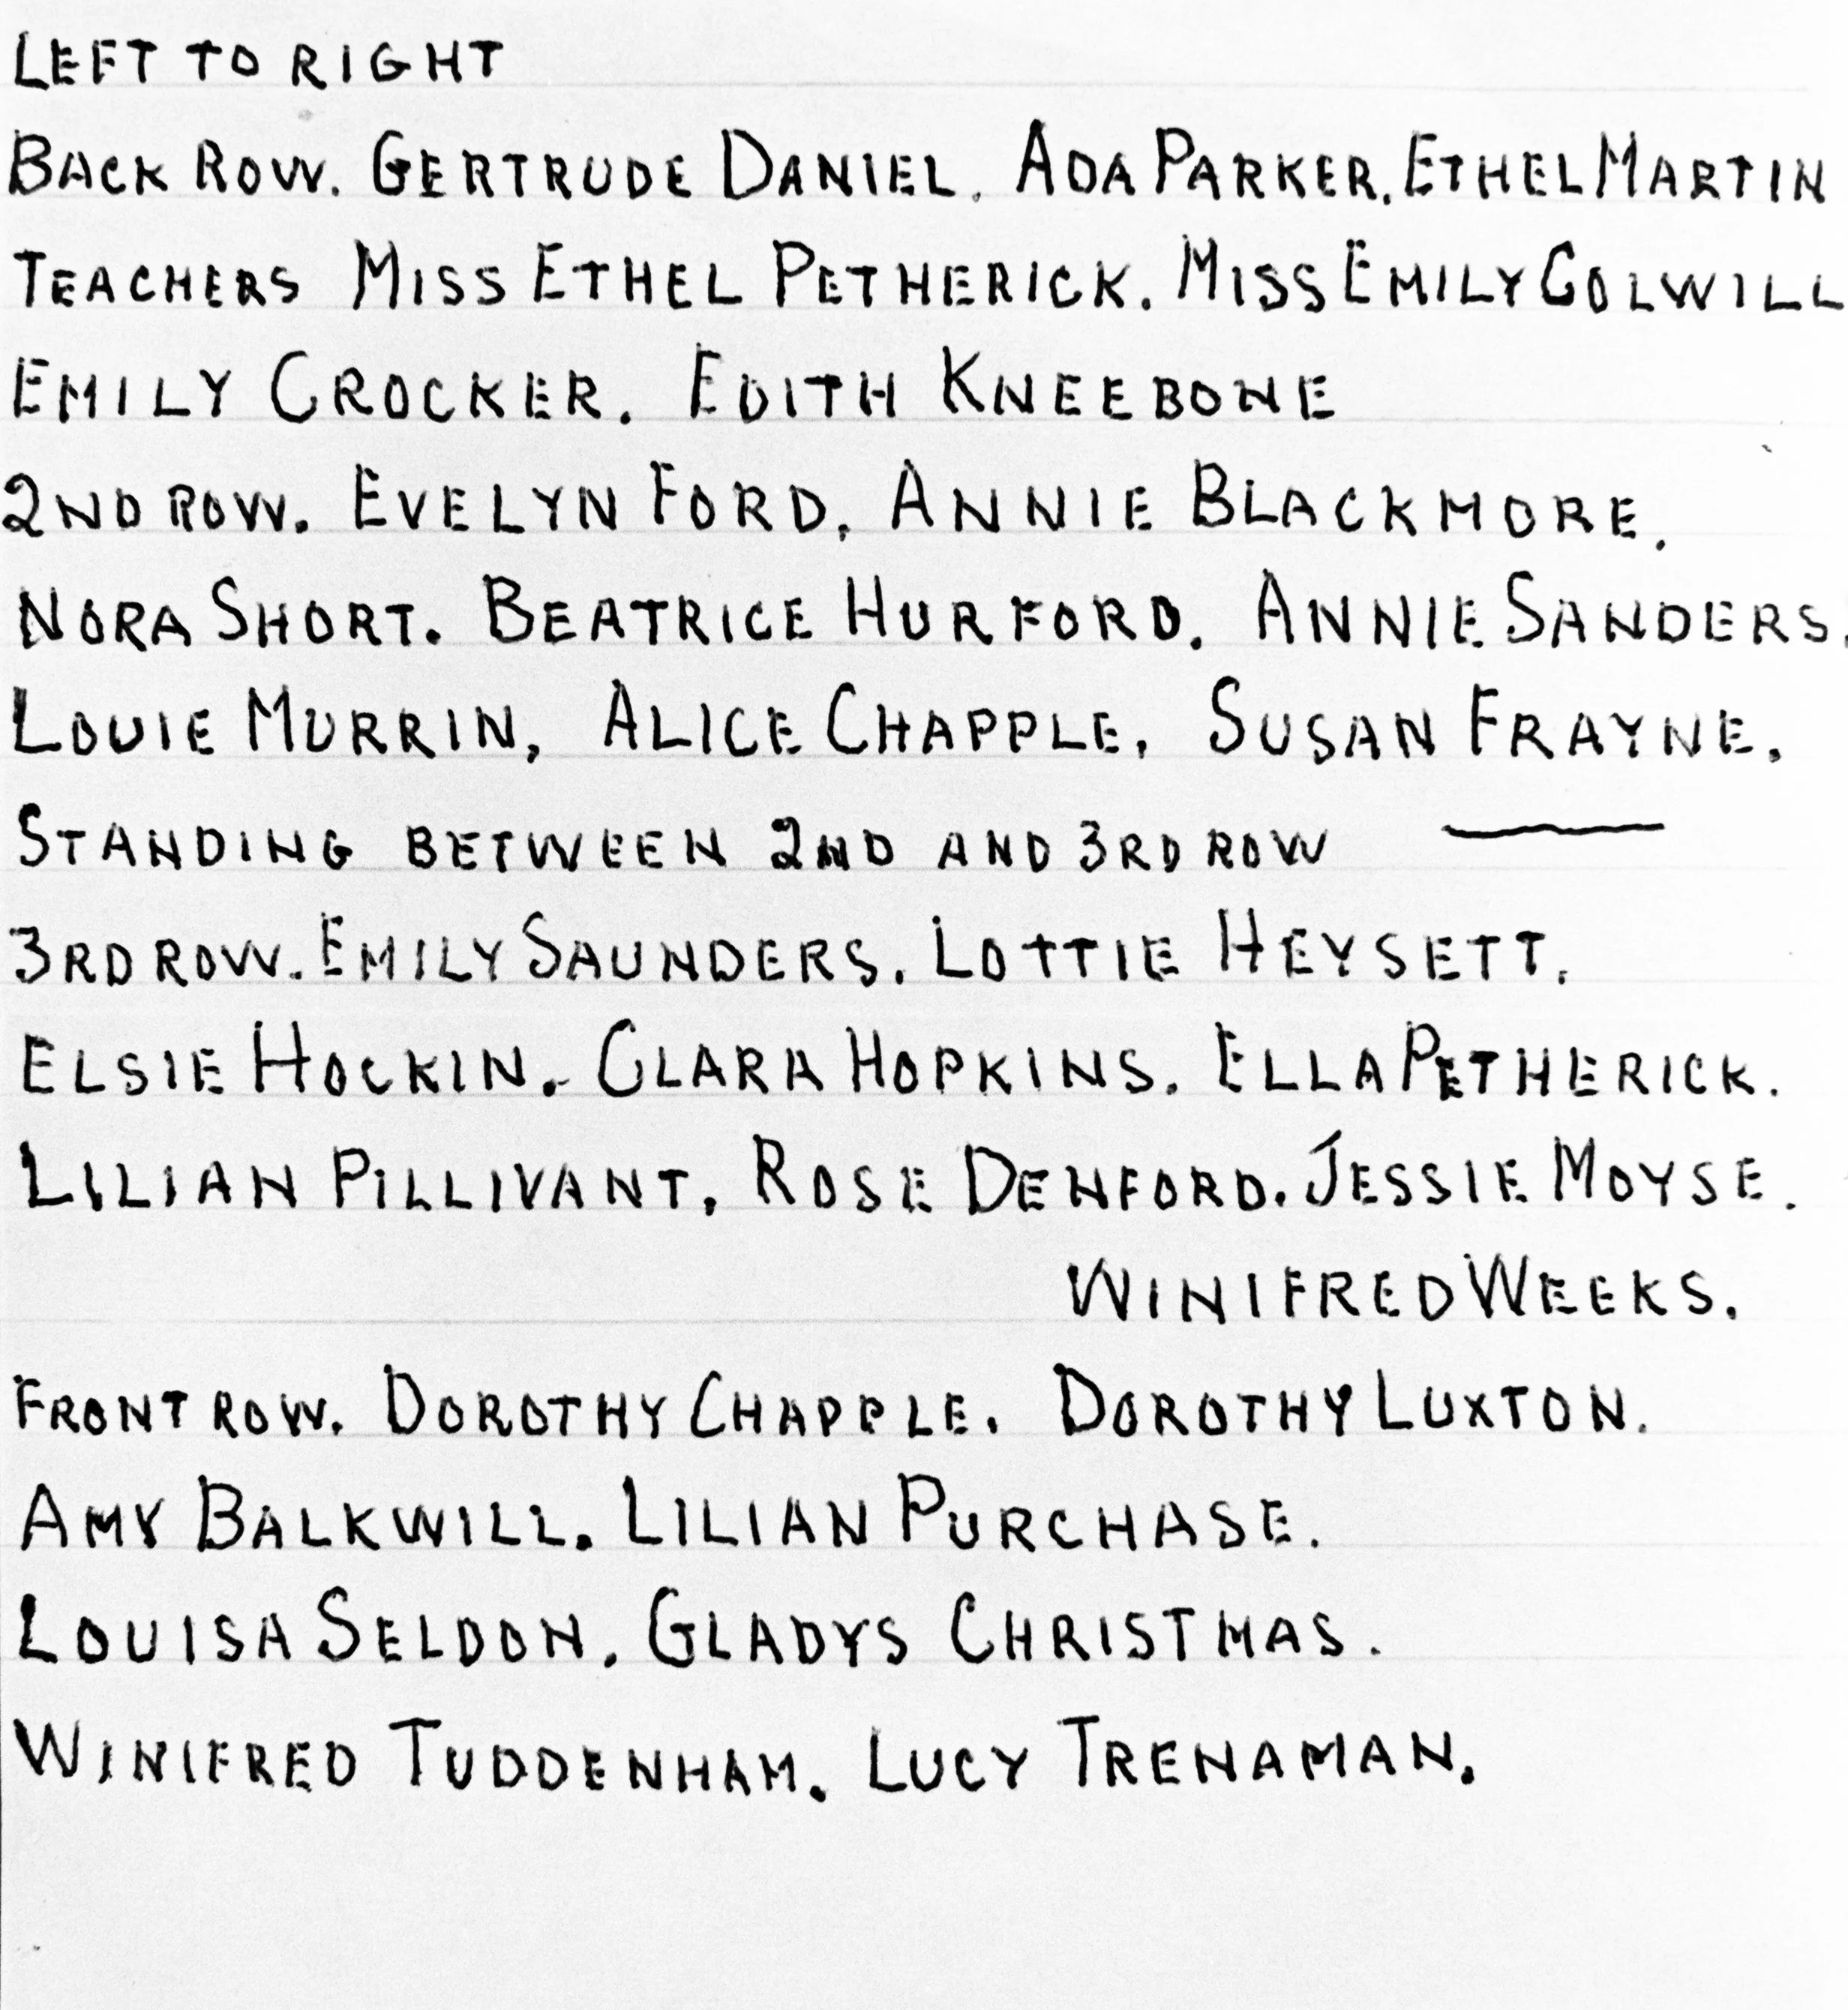 LEFT TO RIGHT
BACK ROW. GERTRUDE DANIEL. ADA PARKER. ETHEL MARTIN
TEACHERS MISS ETHEL PETHERICK. MISS EMILY COLWILL
EMILY CROCKER. EDITH KNEEBONE
2ND ROW. EVELYN FORD. ANNIE BLACKMORE.
NORA SHORT. BEATRICE HURFORD. ANNIE SANDERS.
LOUIE MURRIN, ALICE CHAPPLE, SUSAN FRAYNE.
STANDING BETWEEN 2ND AND 3RD ROW —
3RD ROW. EMILY SAUNDERS. LOTTIE HEYSETT.
ELSIE HOCKIN. CLARA HOPKINS. ELLA PETHERICK.
LILIAN PILLIVANT, ROSE DENFORD. JESSIE MOYSE.
WINIFRED WEEKS.
FRONT ROW. DOROTHY CHAPPLE. DOROTHY LUXTON.
AMY BALKWILL. LILIAN PURCHASE.
LOUISA SELDON. GLADYS CHRISTMAS.
WINIFRED TUDDENHAM. LUCY TRENAMAN.